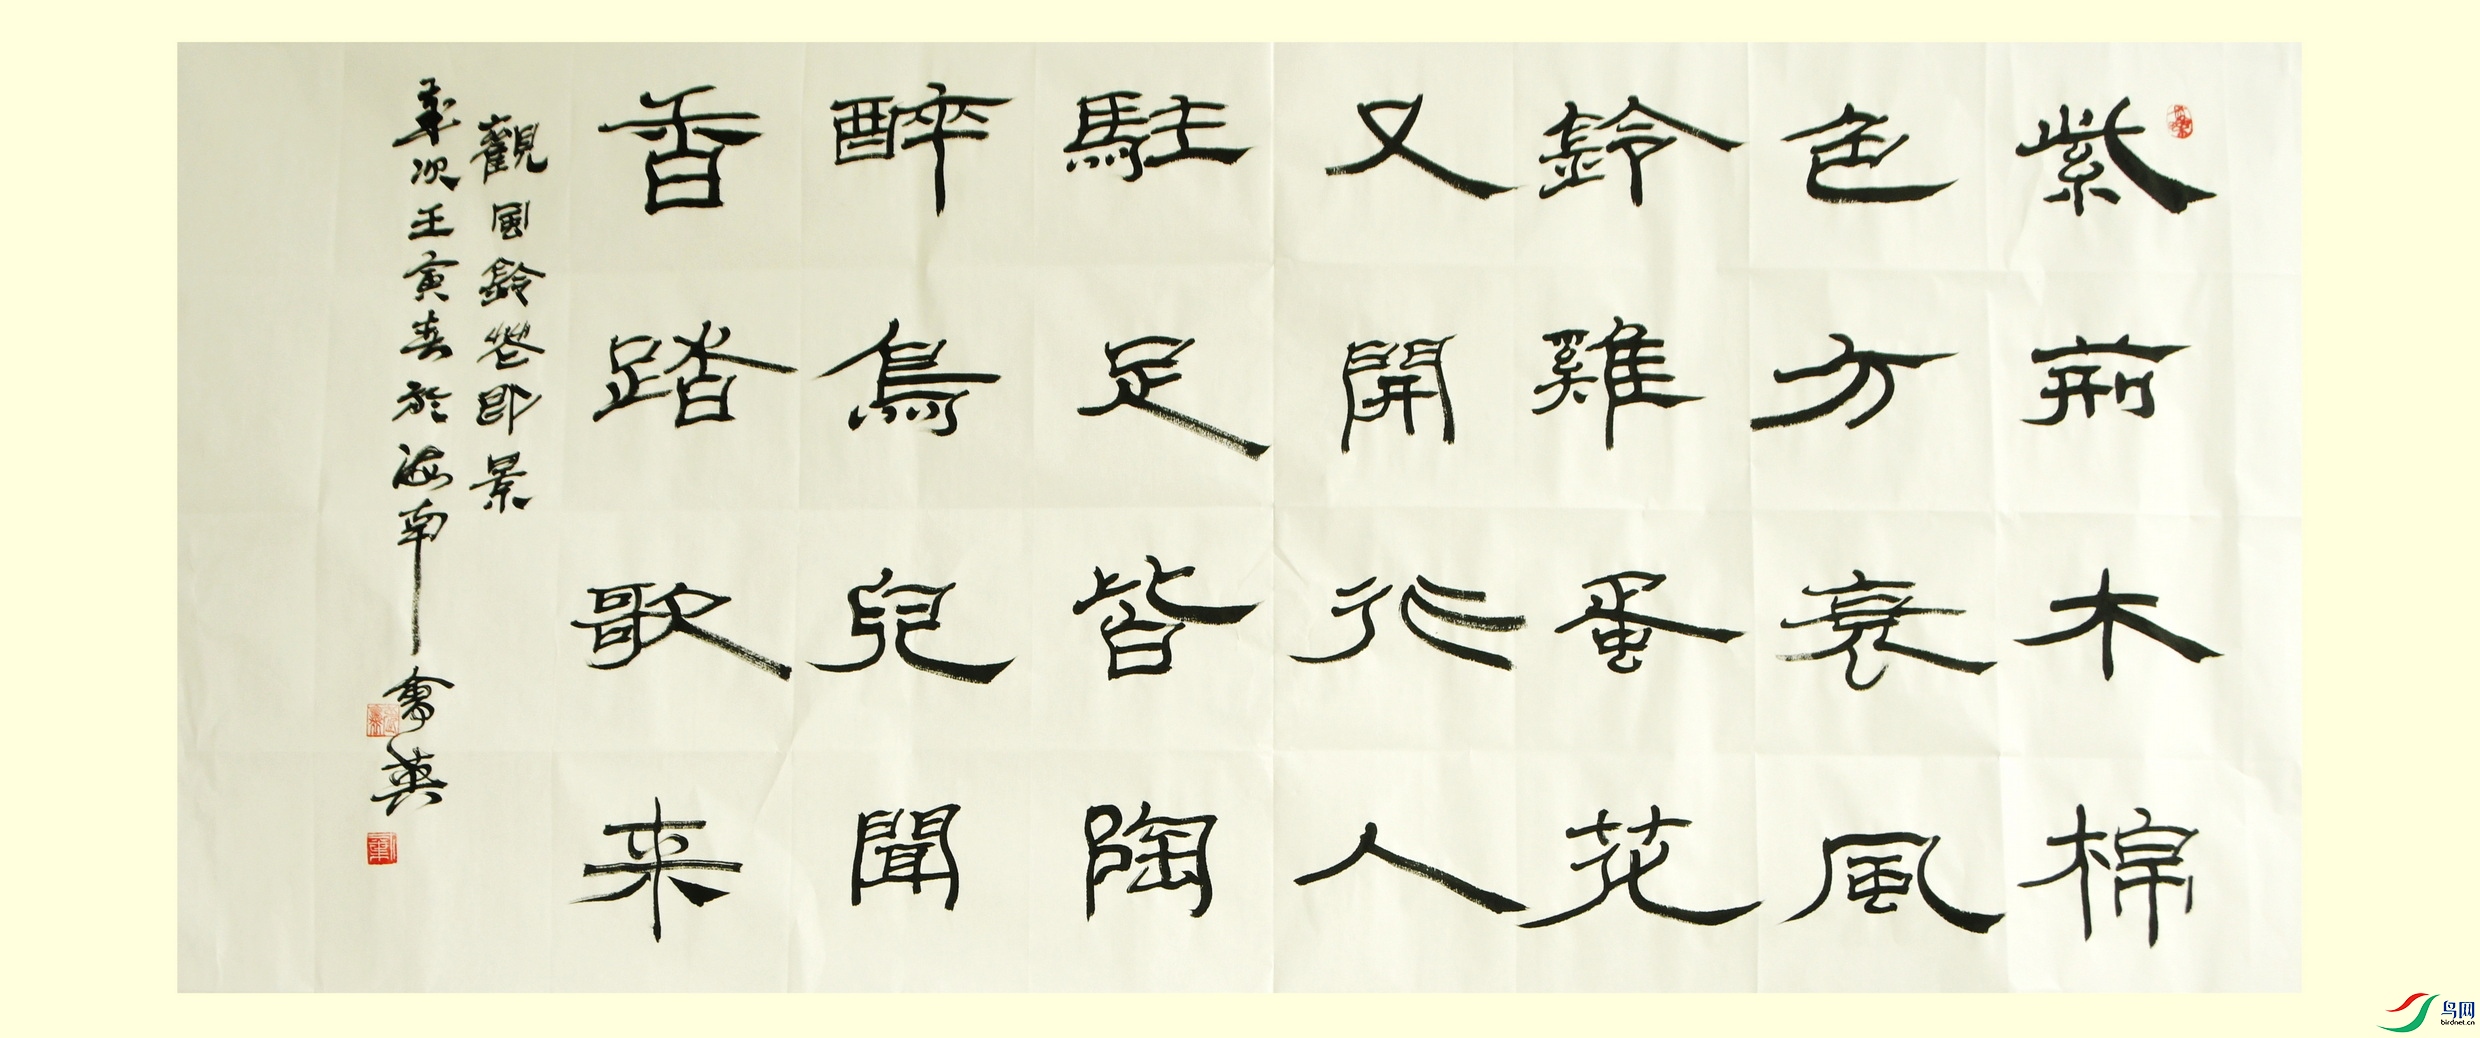 紫荊木棉
色方衰風
鈴雞蛋花
又開行人
駐足皆陶
醉鳥兒聞
香踏歌来
觀風鈴花即景
歲次壬寅春於海南 會英
鸟网
birdnet.cn